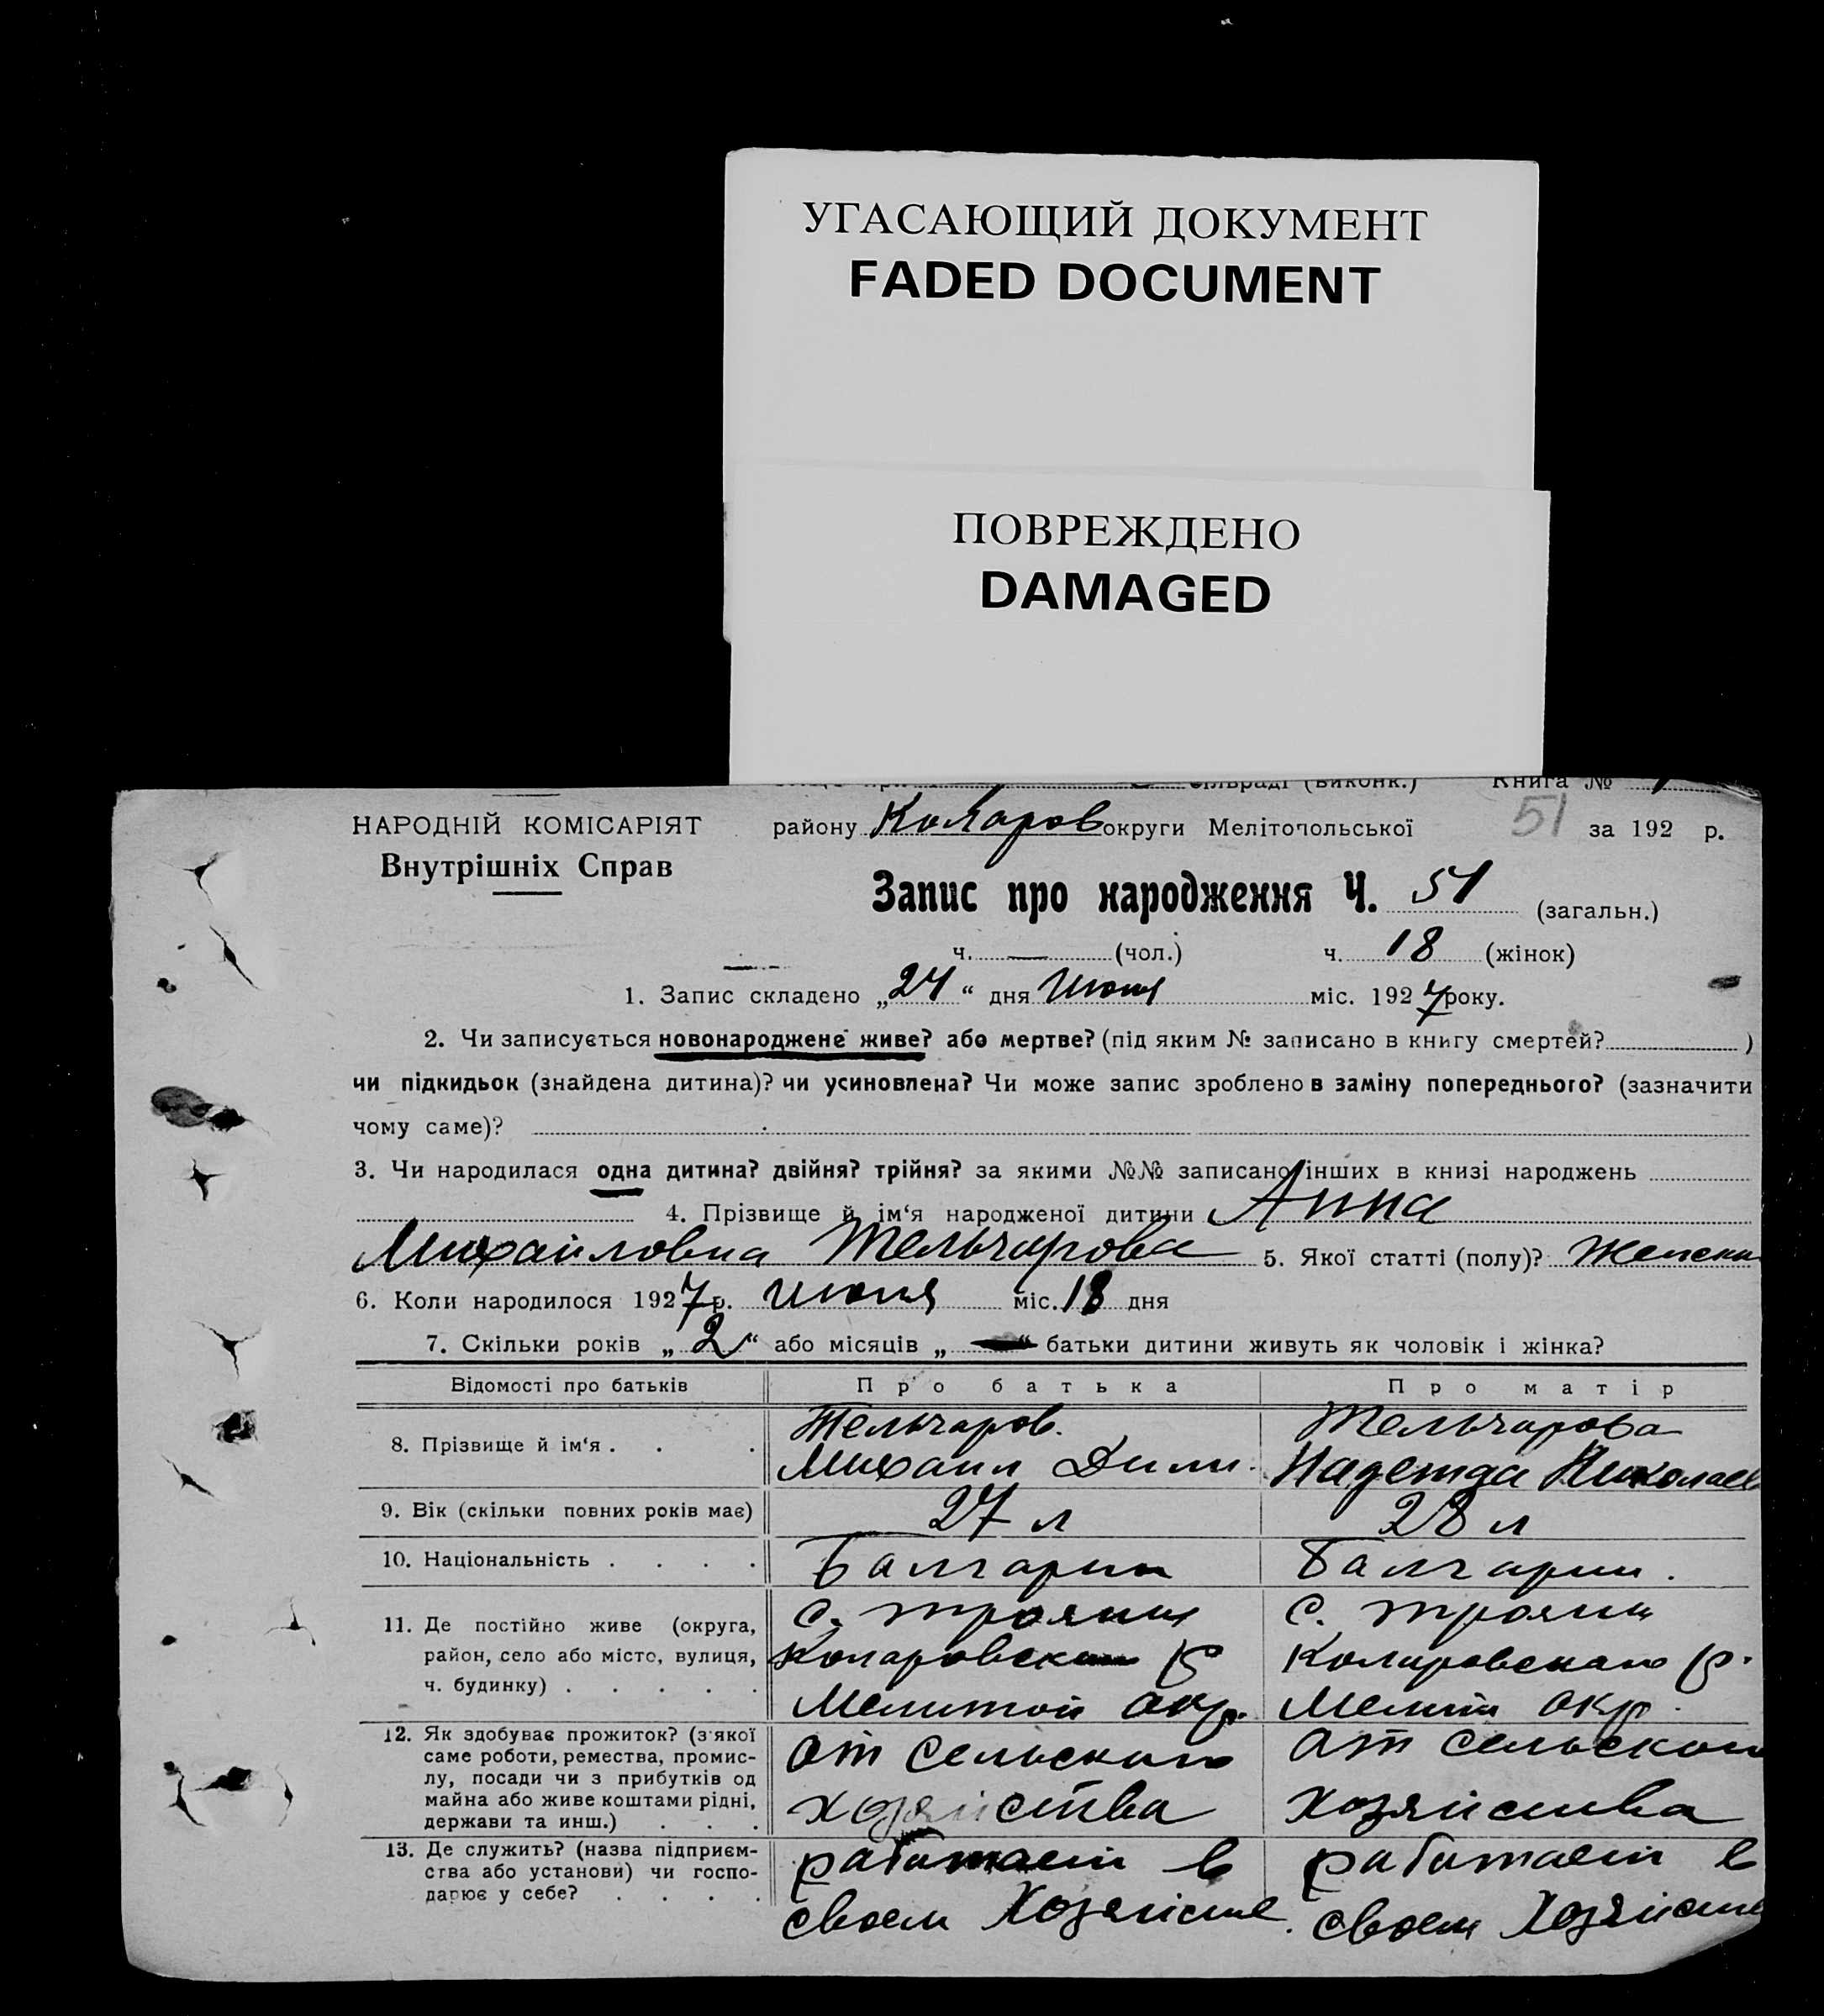 УГАСАЮЩИЙ ДОКУМЕНТ
FADED DOCUMENT
ПОВРЕЖДЕНО
DAMAGED
сільраді (виконк.) Книга №
НАРОДНІЙ КОМІСАРІЯТ
Внутрішніх Справ
району Коларов округи Мелітопольської 51 за 192 р.
Запис про народження Ч. 51 (загальн.)
ч. — (чол.) ч. 18 (жінок)
1. Запис складено „24“ дня Июня міс. 1927 року.
2. Чи записується новонароджене живе? або мертве? (під яким № записано в книгу смертей? )
чи підкидьок (знайдена дитина)? чи усиновлена? Чи може запис зроблено в заміну попереднього? (зазначити
чому саме)?
3. Чи народилася одна дитина? двійня? трійня? за якими №№ записано інших в книзі народжень
4. Прізвище й ім‘я народженої дитини Анна
Михайловна Тельчарова 5. Якої статті (полу)? Женски
6. Коли народилося 1927 р. июня міс. 18 дня
7. Скільки років „2“ або місяців „—“ батьки дитини живуть як чоловік і жінка?
Відомості про батьків Про батька Про матір
8. Прізвище й ім‘я . . . Тельчаров. Михаил Дими. Тельчарова Надежда Николаев
9. Вік (скільки повних років має) 27 л 28 л
10. Національність . . . . Балгарин Балгарин.
11. Де постійно живе (округа, район, село або місто, вулиця, ч. будинку) . . . . . с. Трояны Коларовскаго р Мелитоп окр. с. Трояны Коларовскаго р. Мелит окр.
12. Як здобуває прожиток? (з якої саме роботи, ремества, промислу, посади чи з прибутків од майна або живе коштами рідні, держави та инш.) . . . от сельскаго хозяйства от сельскаго хозяйства
13. Де служить? (назва підприємства або установи) чи господарює у себе? . . . . работает в своем Хозяйстве. работает в своем Хозяйстве